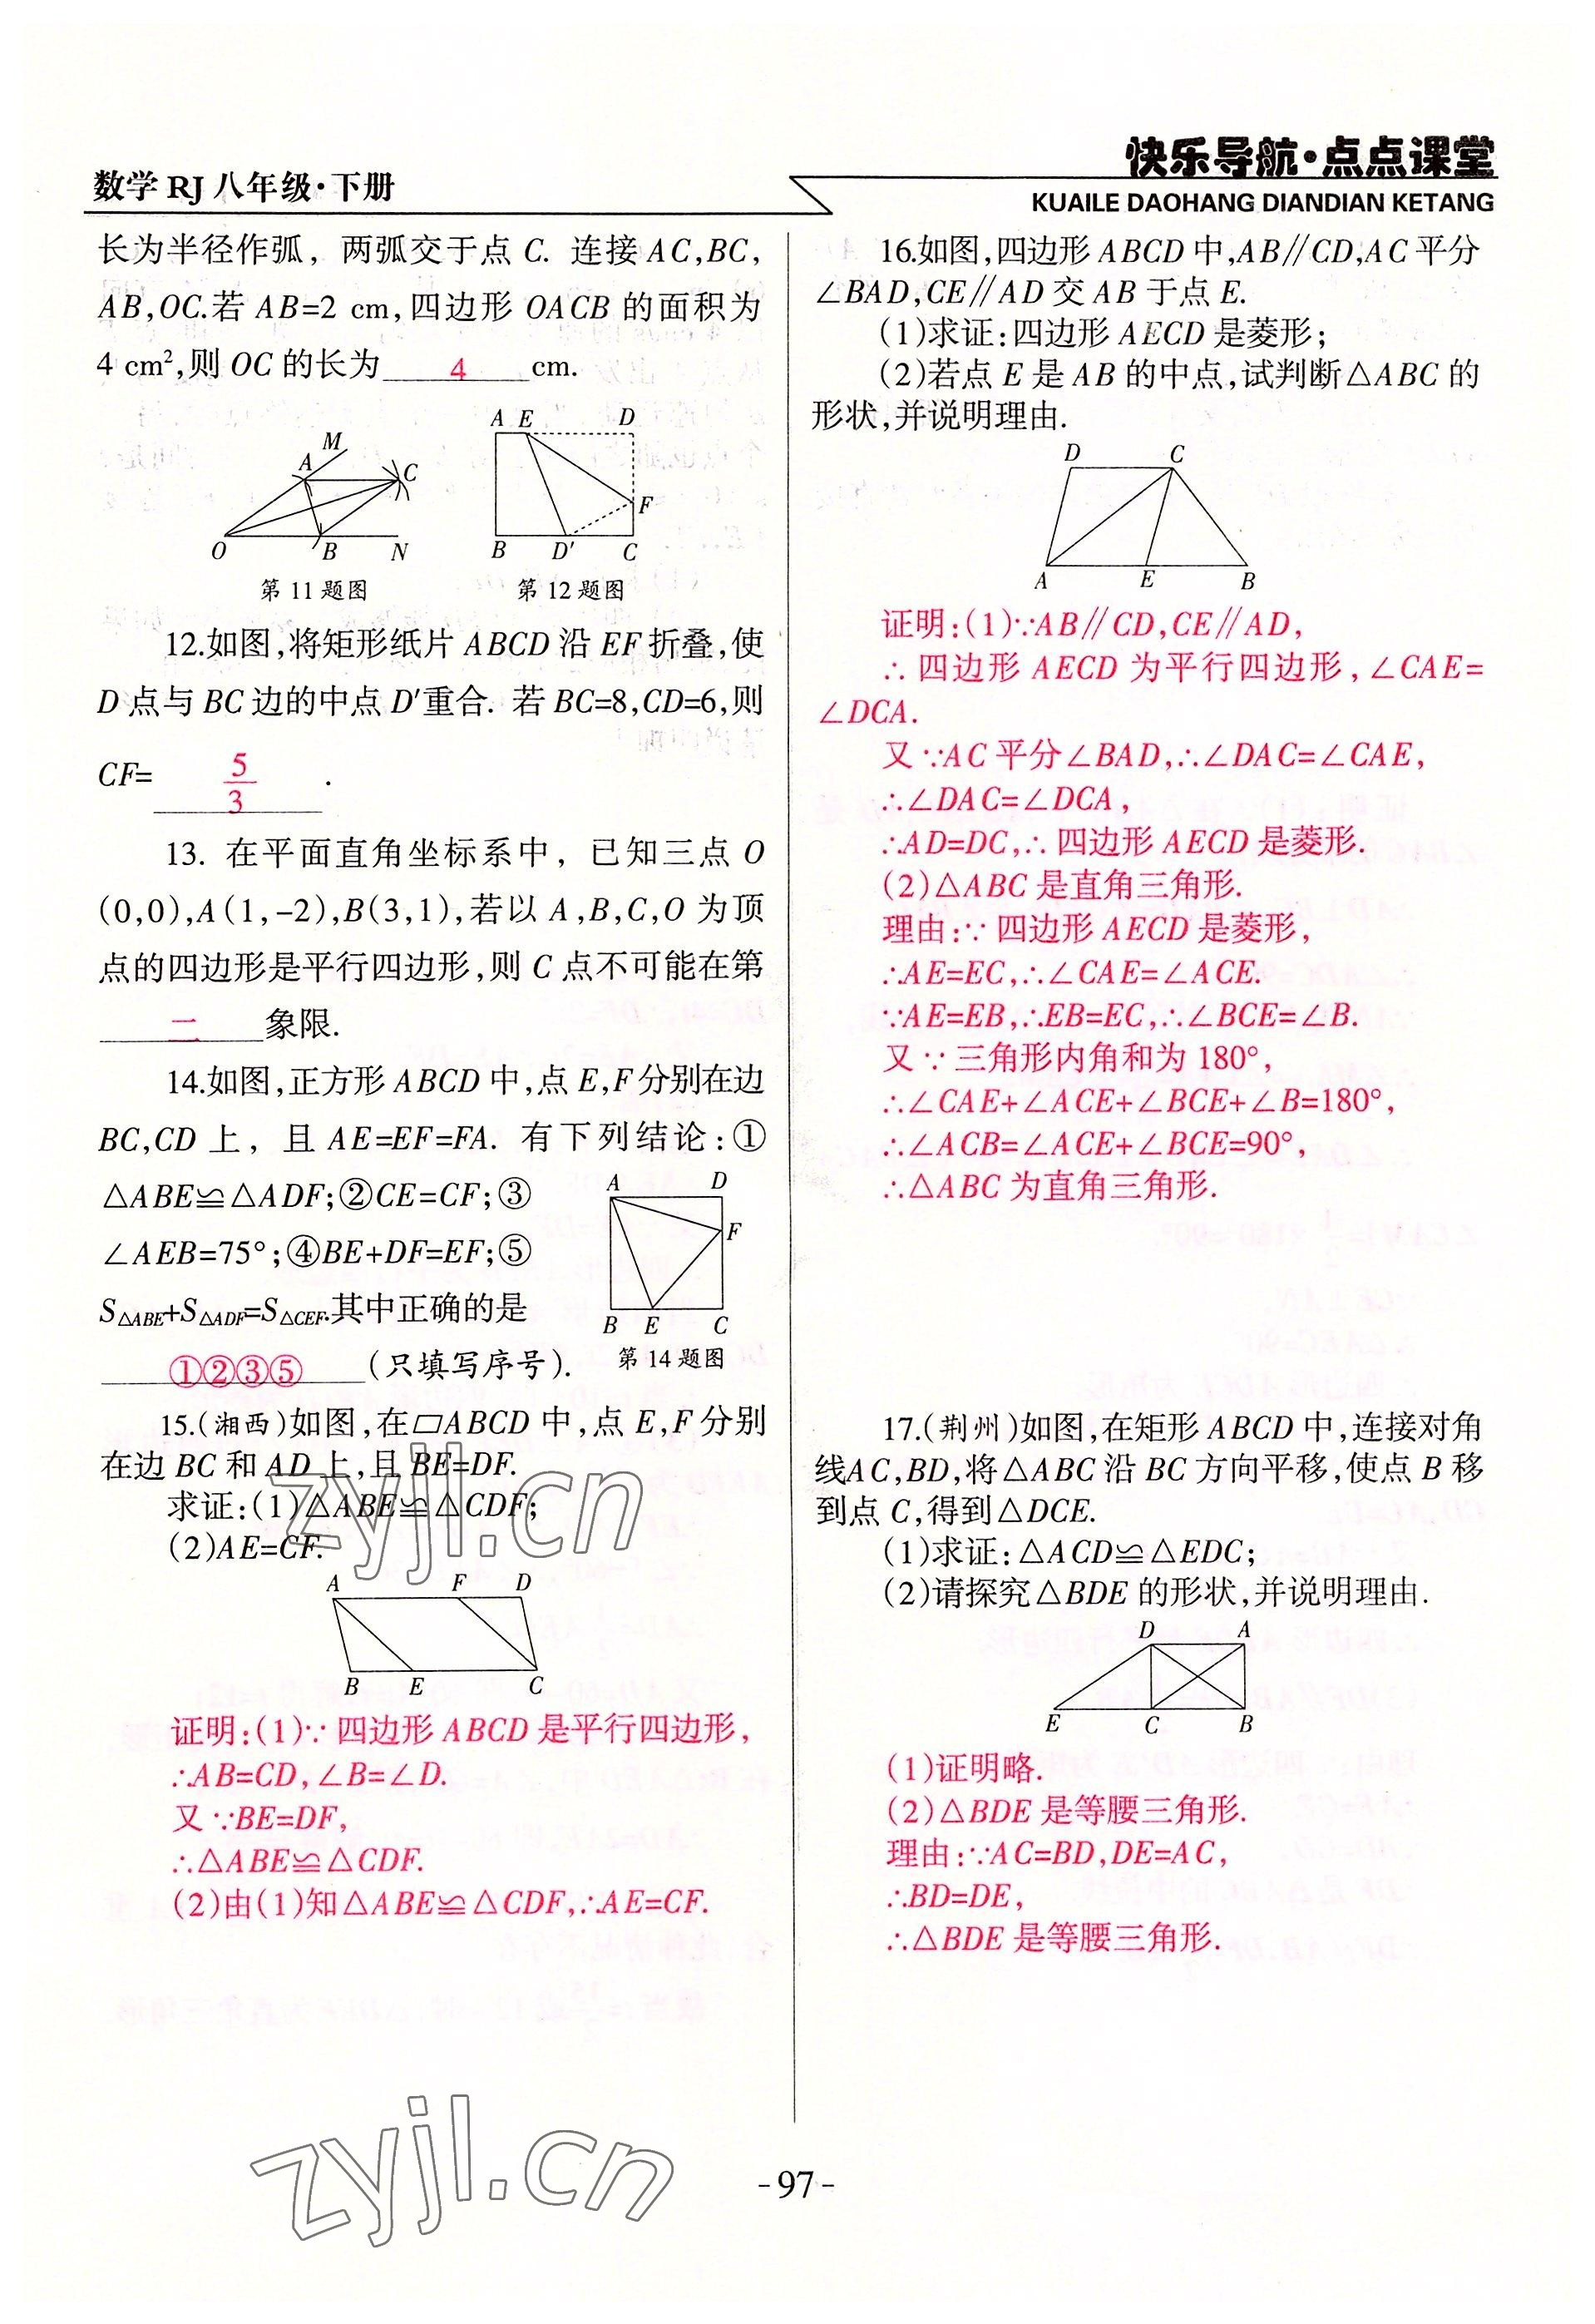 数学 RJ 八年级·下册
快乐导航·点点课堂
KUAILE DAOHANG DIANDIAN KETANG
长为半径作弧，两弧交于点 C. 连接 AC,BC,
AB,OC.若 AB=2 cm,四边形 OACB 的面积为
4 cm²,则 OC 的长为 4 cm.
M
A
C
O
B
N
第 11 题图
A E D
F
B D′ C
第 12 题图
12.如图,将矩形纸片 ABCD 沿 EF 折叠,使
D 点与 BC 边的中点 D′重合. 若 BC=8,CD=6,则
CF= 5/3 .
13. 在平面直角坐标系中，已知三点 O
(0,0),A(1,-2),B(3,1),若以 A,B,C,O 为顶
点的四边形是平行四边形,则 C 点不可能在第
二 象限.
14.如图,正方形 ABCD 中,点 E,F 分别在边
BC,CD 上，且 AE=EF=FA. 有下列结论:①
△ABE≌△ADF;②CE=CF;③
∠AEB=75°;④BE+DF=EF;⑤
S△ABE+S△ADF=S△CEF.其中正确的是
①②③⑤ (只填写序号).
A D
F
B E C
第 14 题图
15.(湘西)如图,在▱ABCD 中,点 E,F 分别
在边 BC 和 AD 上,且 BE=DF.
求证:(1)△ABE≌△CDF;
(2)AE=CF.
A F D
B E C
证明:(1)∵四边形 ABCD 是平行四边形,
∴AB=CD,∠B=∠D.
又∵BE=DF,
∴△ABE≌△CDF.
(2)由(1)知△ABE≌△CDF,∴AE=CF.
16.如图,四边形 ABCD 中,AB∥CD,AC 平分
∠BAD,CE∥AD 交 AB 于点 E.
(1)求证:四边形 AECD 是菱形;
(2)若点 E 是 AB 的中点,试判断△ABC 的
形状,并说明理由.
D C
A E B
证明:(1)∵AB∥CD,CE∥AD,
∴四边形 AECD 为平行四边形,∠CAE=
∠DCA.
又∵AC 平分∠BAD,∴∠DAC=∠CAE,
∴∠DAC=∠DCA,
∴AD=DC,∴四边形 AECD 是菱形.
(2)△ABC 是直角三角形.
理由:∵四边形 AECD 是菱形,
∴AE=EC,∴∠CAE=∠ACE.
∵AE=EB,∴EB=EC,∴∠BCE=∠B.
又∵三角形内角和为 180°,
∴∠CAE+∠ACE+∠BCE+∠B=180°,
∴∠ACB=∠ACE+∠BCE=90°,
∴△ABC 为直角三角形.
17.(荆州)如图,在矩形 ABCD 中,连接对角
线AC,BD,将△ABC 沿 BC 方向平移,使点 B 移
到点 C,得到△DCE.
(1)求证:△ACD≌△EDC;
(2)请探究△BDE 的形状,并说明理由.
D A
E C B
(1)证明略.
(2)△BDE 是等腰三角形.
理由:∵AC=BD,DE=AC,
∴BD=DE,
∴△BDE 是等腰三角形.
zyjl.cn
zyjl.cn
-97-